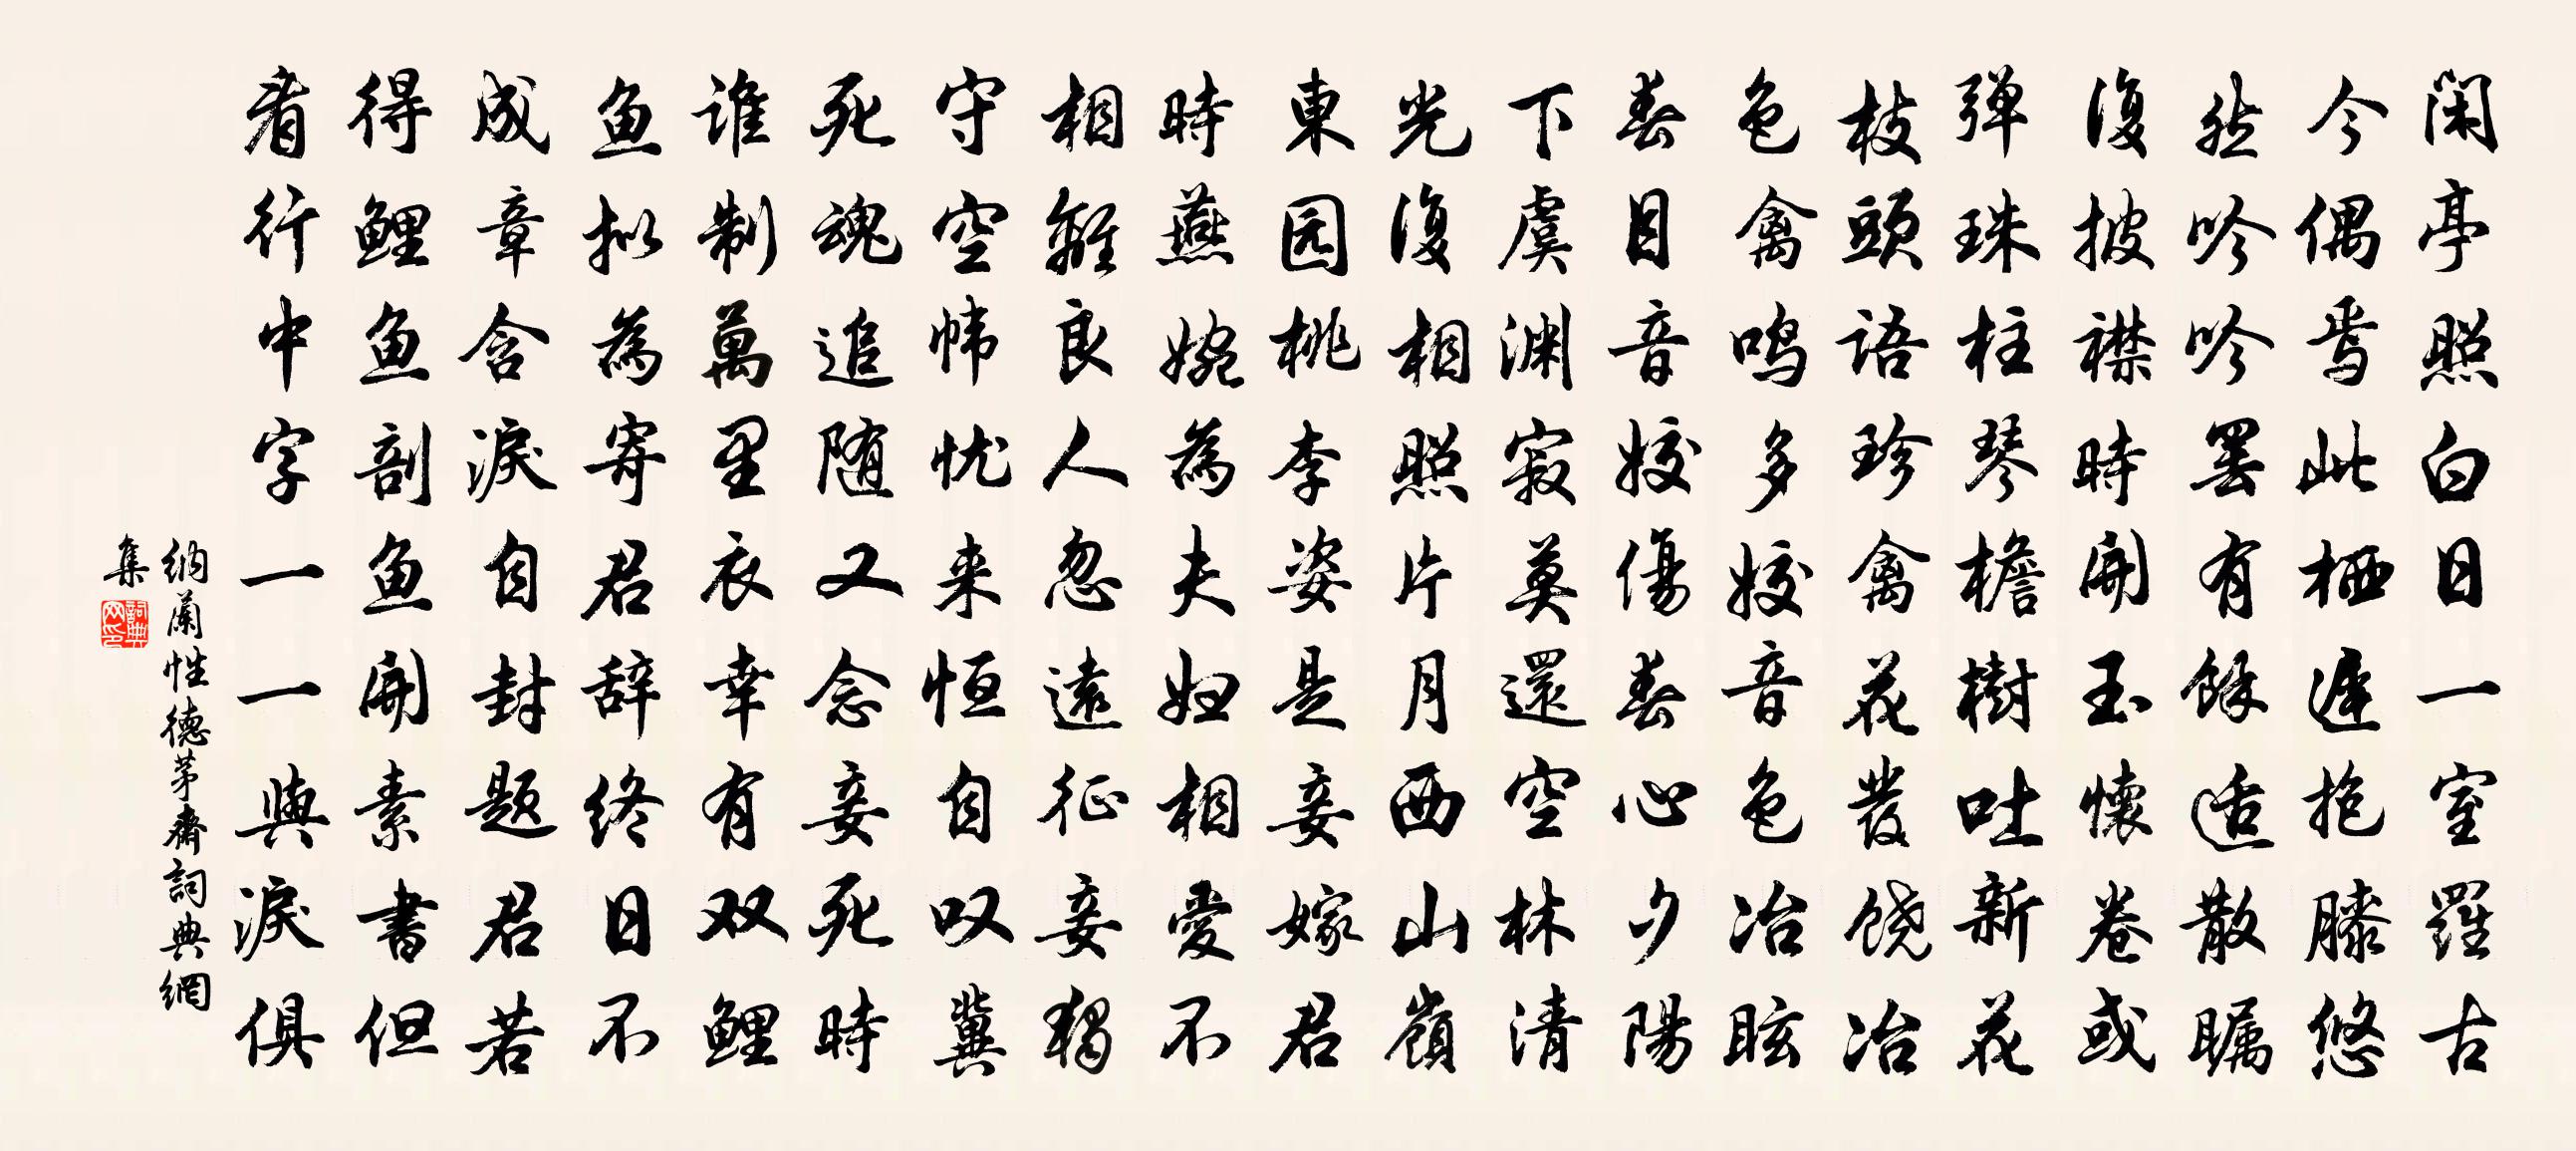 闲亭照白日一室羅古
今偶焉此栖遲抱膝悠
然吟吟罢有餘适散瞩
復披襟時開玉懷卷或
弹珠柱琴檐樹吐新花
枝頭語珍禽花發饶冶
色禽鸣多姣音色冶眩
春目音姣傷春心夕陽
下虞渊寂莫還空林清
光復相照片月西山嶺
東园桃李姿是妾嫁君
時燕婉為夫妇相愛不
相離良人忽遠征妾獨
守空帏忧来恒自叹冀
死魂追随又念妾死時
谁制萬里衣幸有双鲤
鱼拟為寄君辞终日不
成章含淚自封题君若
得鲤鱼剖鱼開素書但
看行中字一一與淚俱
納蘭性德茅齋詞典網
集
詞典网印